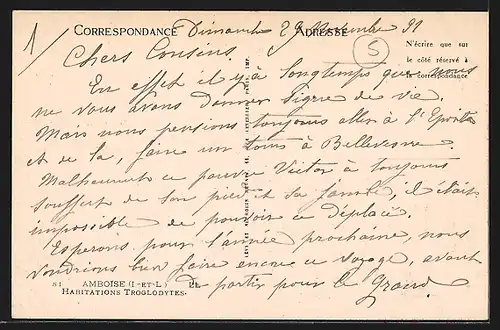 1/
CORRESPONDANCE
ADRESSE
Dimanche 29 Novembre 31
5
N'écrire que sur
le côté réservé à
la correspondance
Chers Cousins
En effet il y à longtemps que nous
ne vous avons donner signe de vie
Mais nous pensions toujours aller à l'
et de la, faire un tours à Bellevesne
Malheureusement ce pauvre Victor à toujours
souffert de son pied et sa jambe, il était
impossible de pouvoir ce déplacé.
Esperons pour l'année prochaine, nous
voudrions bien faire encore ce voyage, avant
de partir pour le Grand
81 AMBOISE (I-ET-L)
HABITATIONS TROGLODYTES.
LL